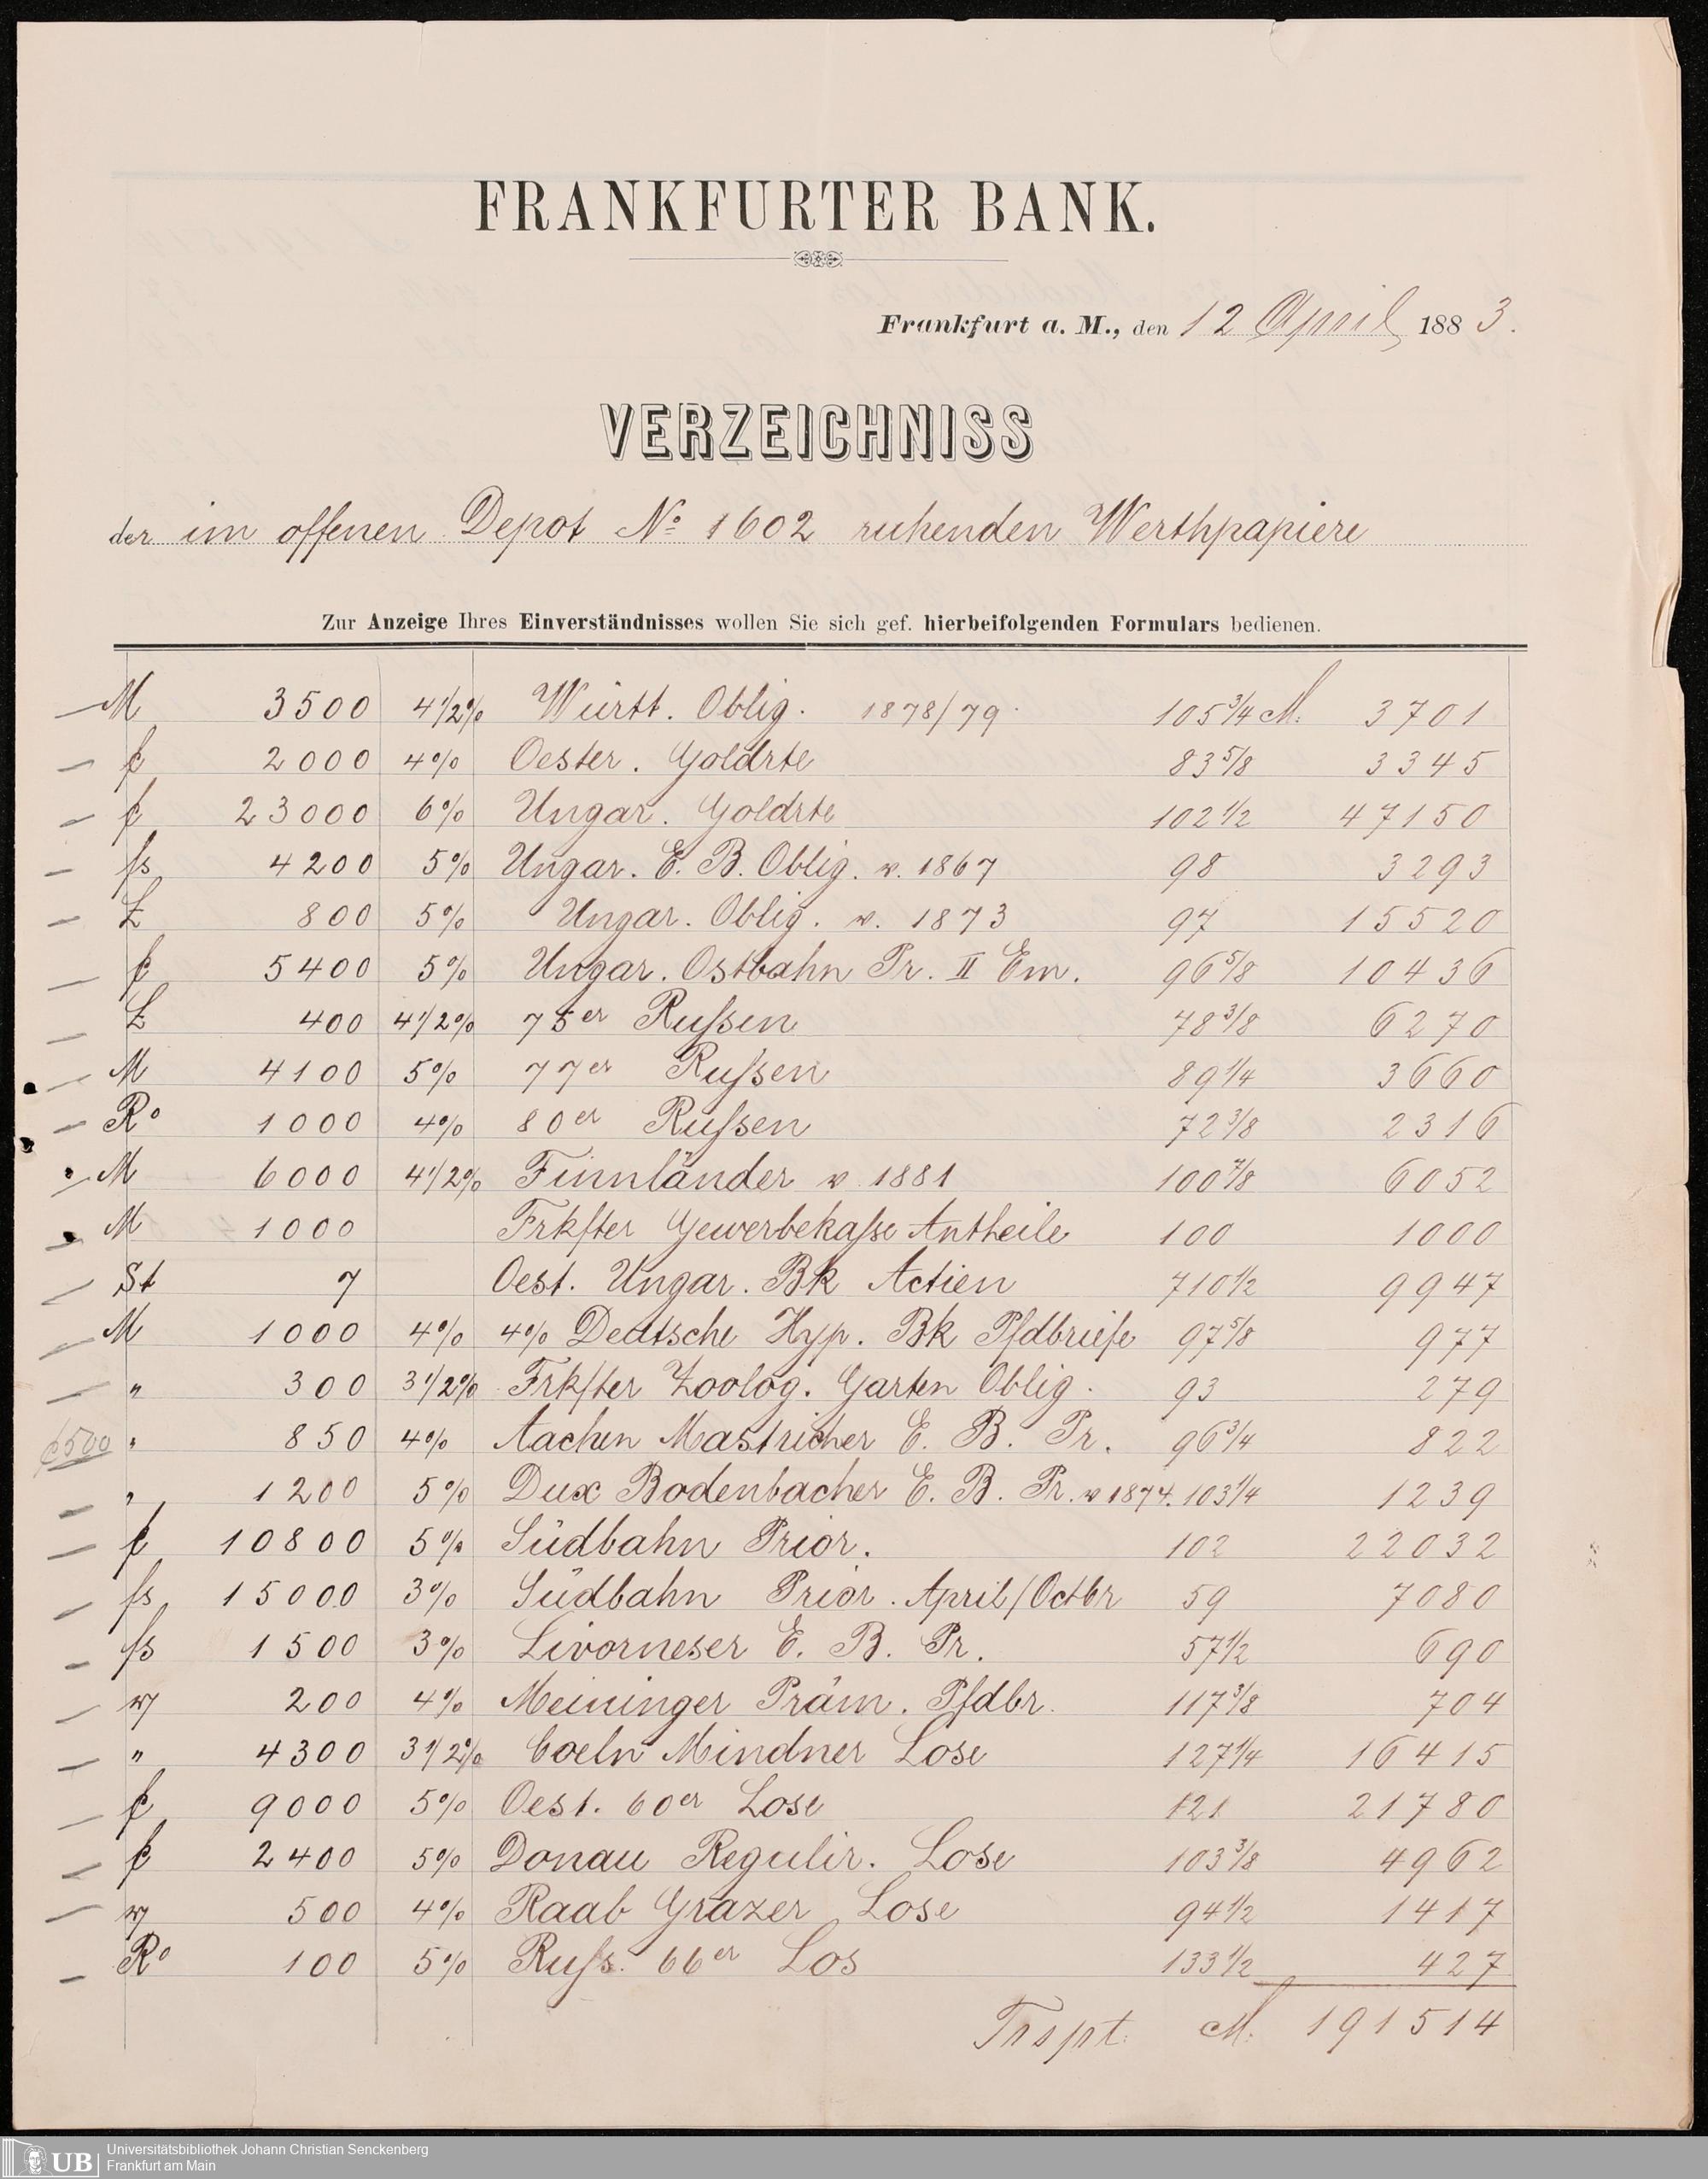 FRANKFURTER BANK.
Frankfurt a. M., den 12 April 1883.
VERZEICHNISS
der im offenen Depot No 1602 ruhenden Werthpapiere
Zur Anzeige Ihres Einverständnisses wollen Sie sich gef. hierbeifolgenden Formulars bedienen.
M 3500 4 1/2% Württ. Oblig. 1878/79. 105 3/4 M. 3701
f 2000 4% Oester. Goldrte 83 5/8 3345
f 23000 6% Ungar. Goldrte 102 1/2 47150
fs 4200 5% Ungar. E. B. Oblig. v. 1867 98 3293
£ 800 5% Ungar. Oblig. v. 1873 97 15520
f 5400 5% Ungar. Ostbahn Pr. II Em. 96 5/8 10436
£ 400 4 1/2% 75er Rußen 78 3/8 6270
M 4100 5% 77er Rußen 89 1/4 3660
Ro 1000 4% 80er Rußen 72 3/8 2316
M 6000 4 1/2% Finnländer v 1881 100 7/8 6052
M 1000 Frkfter Gewerbekaße Antheile 100 1000
St 7 Oest. Ungar. Bk Actien 710 1/2 9947
M 1000 4% 4% Deutsche Hyp. Bk Pfdbriefe 97 5/8 977
" 300 3 1/2% Frkfter Zoolog. Garten Oblig. 93 279
" 850 4% Aachen Mastricher E. B. Pr. 96 3/4 822
" 1200 5% Dux Bodenbacher E. B. Pr. v 1874. 103 1/4 1239
f 10800 5% Südbahn Prior. 102 22032
fs 15000 3% Südbahn Prior. April/Octbr 59 7080
fs 1500 3% Livorneser E. B. Pr. 57 1/2 690
200 4% Meininger Präm. Pfdbr. 117 3/8 704
" 4300 3 1/2% Coeln Mindner Lose 127 1/4 16415
f 9000 5% Oest. 60er Lose 121 21780
f 2400 5% Donau Regulir. Lose 103 3/8 4962
500 4% Raab Grazer Lose 94 1/2 1417
Ro 100 5% Ruß. 66er Los 133 1/2 427
Trspt. M. 191514
UB Universitätsbibliothek Johann Christian Senckenberg
Frankfurt am Main